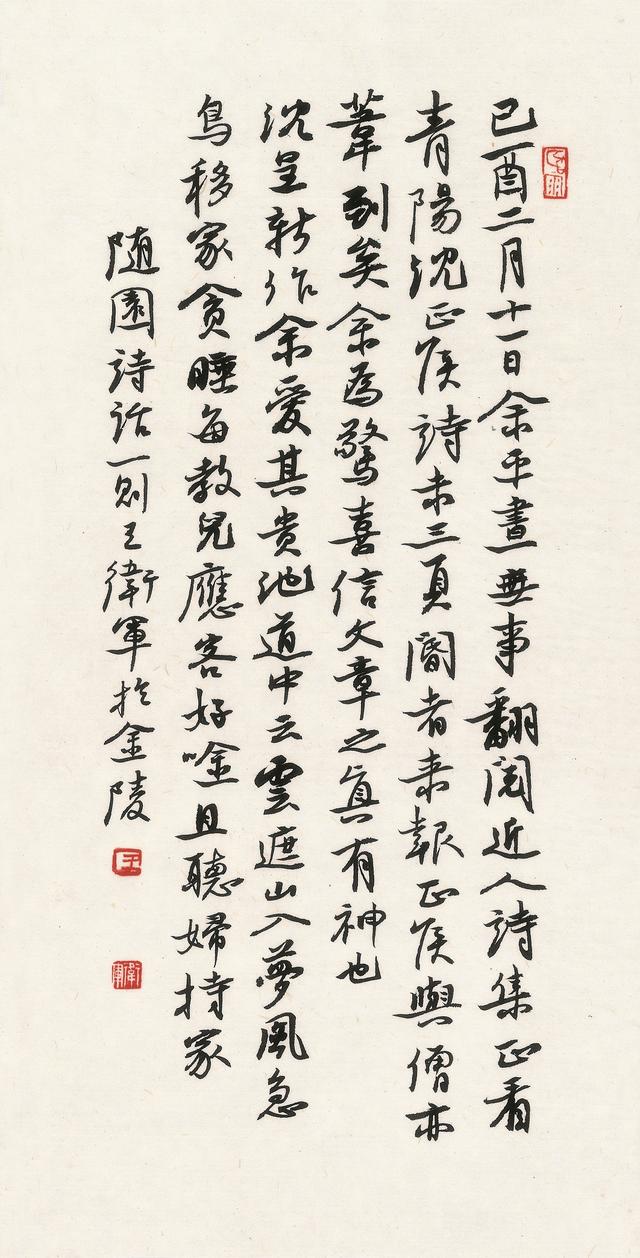 己酉二月十一日余平晝無事翻閱近人詩集正看
青陽沈正侯詩未三頁閽者来報正侯與僧亦
葦到矣余為驚喜信文章之真有神也
沈呈新作余愛其貴池道中云雲遮山入夢風急
鳥移家貪睡每教兒應客好唫且聽婦持家
随園詩話一則王衛軍於金陵